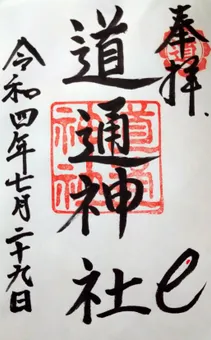 奉拝
道通神社
道通
神社
令和四年七月二十九日